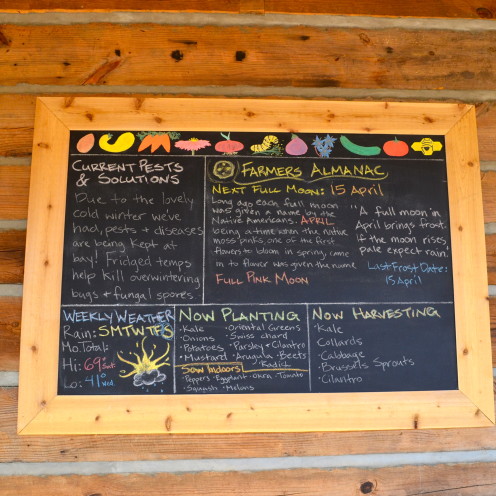 Current Pests
& Solutions
Due to the lovely
cold winter we've
had, pests + diseases
are being kept at
bay! Fridged temps
help kill overwintering
bugs + fungal spores.
Farmers Almanac
Next Full Moon: 15 April
Long ago each full moon
was given a name by the
Native Americans. APRIL
being a time when the native
moss pinks, one of the first
flowers to bloom in spring, came
in to flower was given the name
Full Pink Moon
"A full moon in
April brings frost.
If the moon rises
pale expect rain."
Last Frost Date:
15 April
Weekly Weather
Rain: S M T W T F S
Mo. Total:
Hi: 69°
Lo: 41° wed
Now Planting
·Kale
·Onions
·Potatoes
·Mustard
·Oriental Greens
·Swiss chard
·Parsley + Cilantro
·Arugula ·Beets
·Radish
Sow Indoors:
·Peppers ·Eggplant ·Okra ·Tomato
·Squash ·Melons
Now Harvesting
·Kale
·Collards
·Cabbage
·Brussels Sprouts
·Cilantro